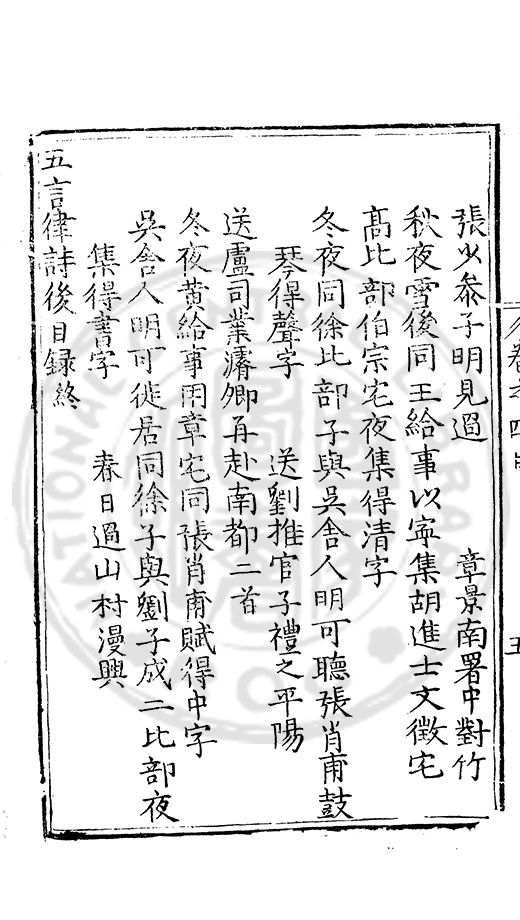 張少叅子明見過　章景南署中對竹
秋夜雪後同王給事以寧集胡進士文徵宅
高比部伯宗宅夜集得清字
冬夜同徐比部子與吳舍人明可聽張肖甫鼓
琴得聲字　送劉推官子禮之平陽
送盧司業濬卿再赴南都二首
冬夜黄給事用章宅同張肖甫賦得中字
吳舍人明可徙居同徐子與劉子成二比部夜
集得書字　春日過山村漫興
五言律詩後目録終